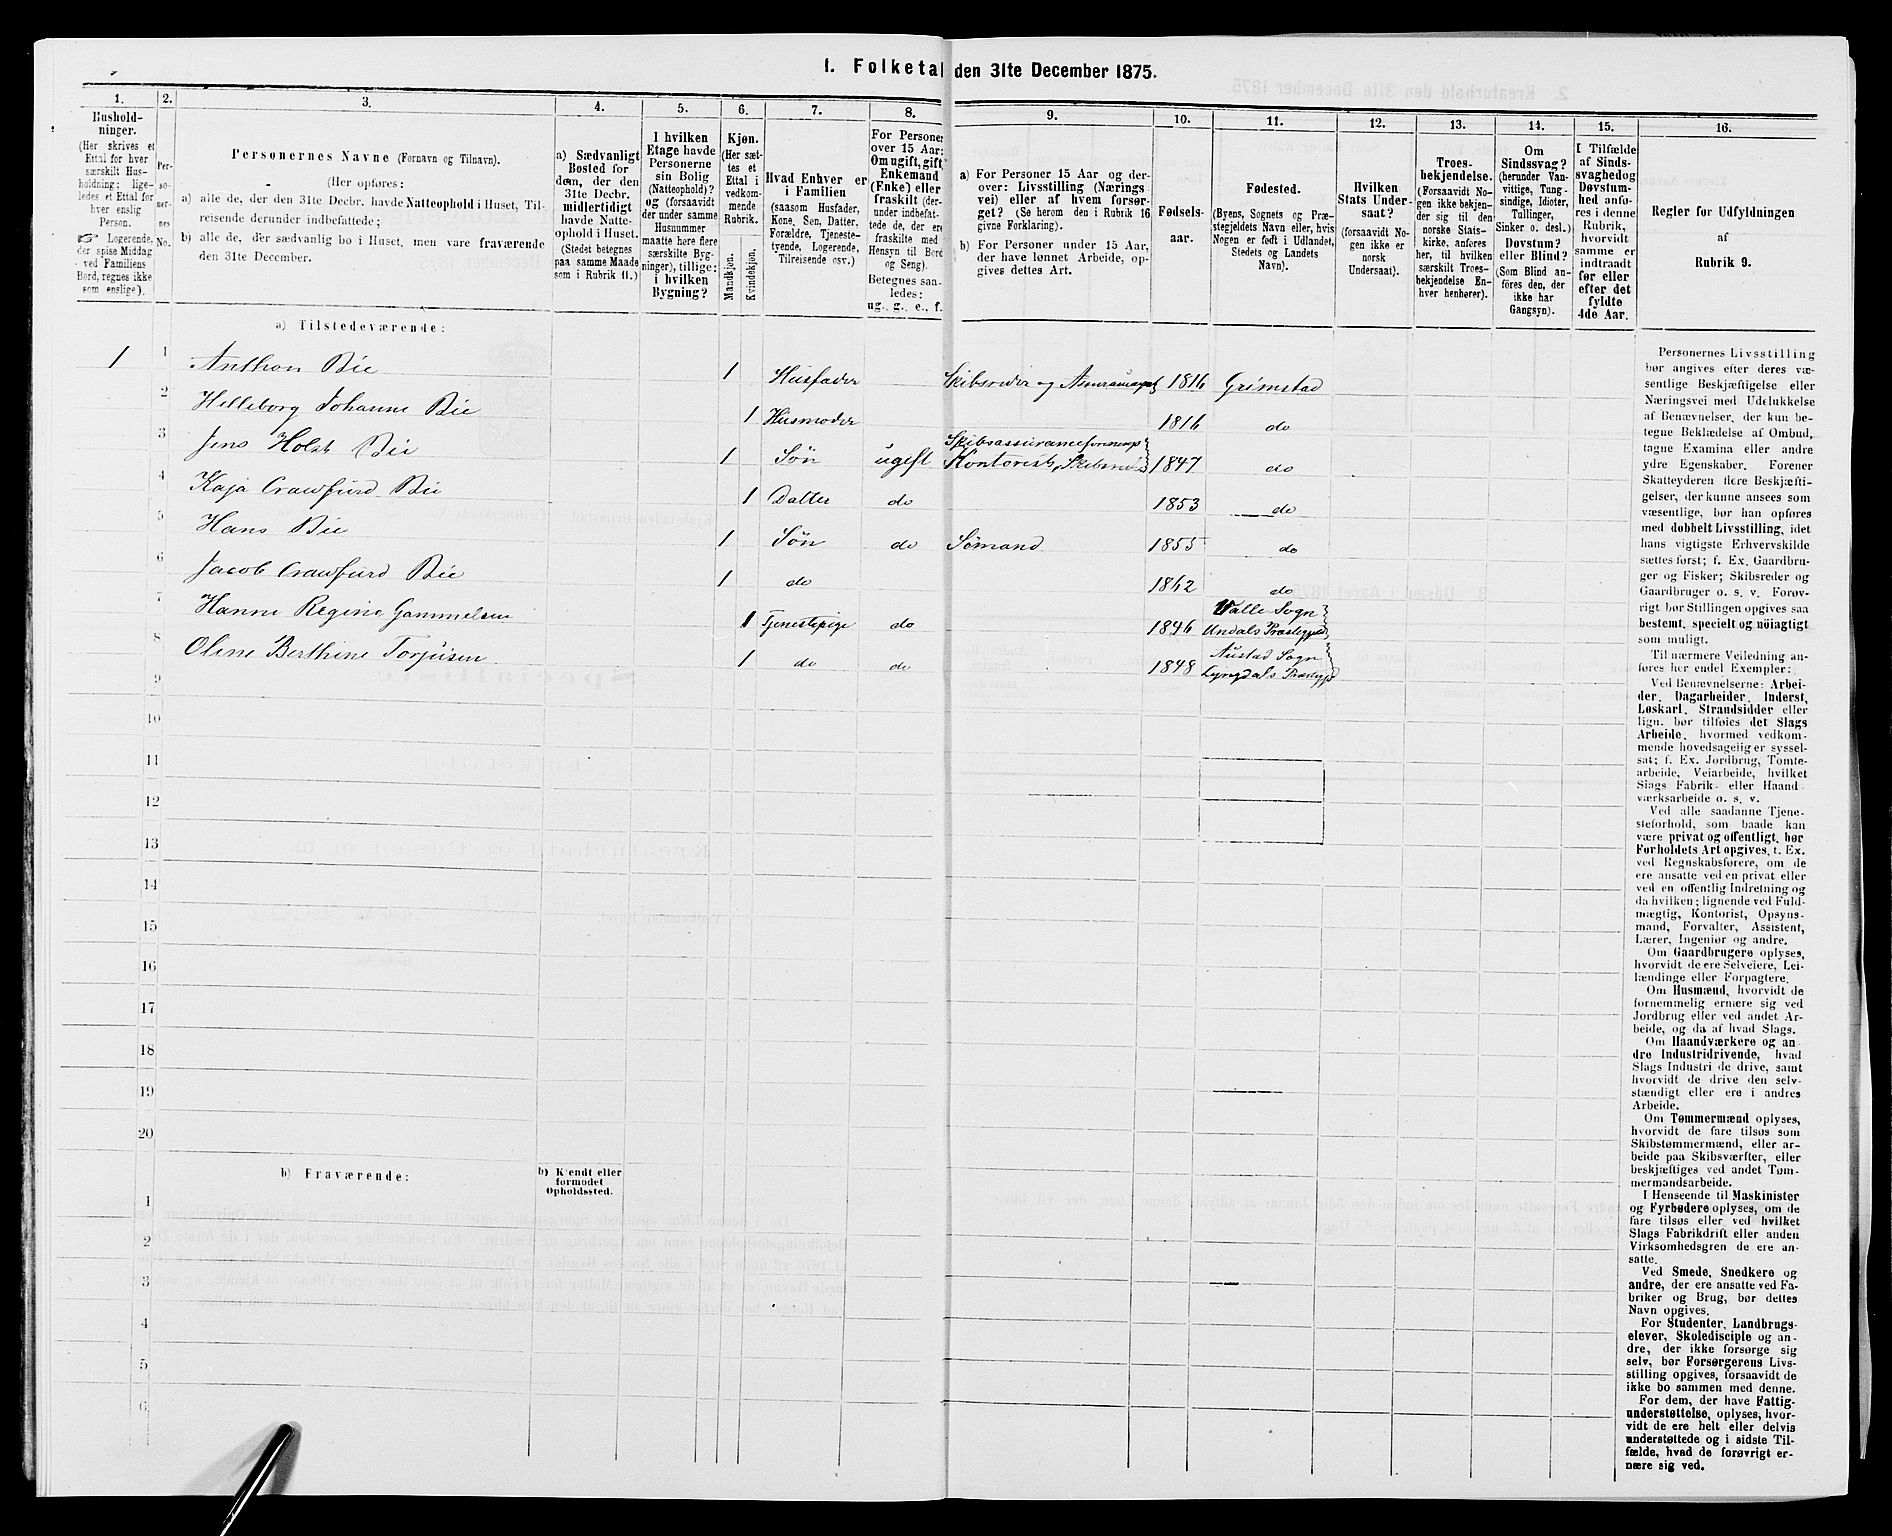 1. Folketal den 31te December 1875.
1.
Hushold-
ninger.
(Her skrives et
Ettal for hver
særskilt Hus-
holdning; lige-
ledes et Ettal for
hver enslig
Person.
Logerende,
der spise Middag
ved Familiens
Bord, regnes ikke
som enslige).
2.
Per-
so-
ner-
nes
No.
3.
Personernes Navne (Fornavn og Tilnavn).
(Her opføres:
a) alle de, der den 31te Decbr. havde Natteophold i Huset, Til-
reisende derunder indbefattede;
b) alle de, der sædvanlig bo i Huset, men vare fraværende
den 31te December.
4.
a) Sædvanligt
Bosted for
dem, der den
31te Decbr.
midlertidigt
havde Natte-
ophold i Huset.
(Stedet betegnes
paa samme Maade
som i Rubrik 11.)
5.
I hvilken
Etage havde
Personerne
sin Bolig
(Natteophold)?
og (forsaavidt
der under samme
Husnummer
maatte høre flere
særskilte Byg-
ninger), tillige:
i hvilken
Bygning?
6.
Kjøn.
(Her sæt-
tes et
Ettal i
vedkom-
mende
Rubrik.
Mandkjøn.
Kvindekjøn.
7.
Hvad Enhver er
i Familien
(saasom Husfader,
Kone, Søn, Datter,
Forældre, Tjeneste-
tyende, Logerende,
Tilreisende osv.)
8.
For Personer
over 15 Aar:
Om ugift, gift,
Enkemand
(Enke) eller
fraskilt (der-
under indbefat-
tede de, der ere
fraskilte med
Hensyn til Bord
og Seng).
Betegnes saa-
ledes:
ug., g., e., f.
9.
a) For Personer 15 Aar og der-
over: Livsstilling (Nærings-
vei) eller af hvem forsør-
get? (Se herom den i Rubrik 16
givne Forklaring).
b) For Personer under 15 Aar,
der have lønnet Arbeide, op-
gives dettes Art.
10.
Fødsels-
aar.
11.
Fødested.
(Byens, Sognets og Præ-
stegjeldets Navn eller, hvis
Nogen er født i Udlandet,
Stedets og Landets
Navn).
12.
Hvilken
Stats Under-
saat?
(forsaavidt No-
gen ikke er
norsk
Undersaat).
13.
Troes-
bekjendelse.
(Forsaavidt No-
gen ikke bekjen-
der sig til den
norske Stats-
kirke, anføres
her, til hvilken
særskilt Troes-
bekjendelse En-
hver henhører).
14.
Om
Sindssvag?
(herunder Van-
vittige, Tung-
sindige, Idioter,
Tullinger,
Sinker o. desl.)
Døvstum?
eller Blind?
(Som Blind an-
føres den, der
ikke har
Gangsyn).
15.
I Tilfælde
af Sinds-
svaghed og
Døvstum-
hed anfø-
res i denne
Rubrik,
hvorvidt
samme er
indtraadt
før eller
efter det
fyldte
4de Aar.
16.
Regler for Udfyldningen
af
Rubrik 9.
a) Tilstedeværende:
1 1 Anthon Bie 1 Husfader Skibsreder og 1816 Grimstad
2 Helleborg Johanne Bie 1 Husmoder 1816 do
3 Jens Holst Bie 1 Søn ugift Kontorist, 1847 do
4 Kaja Crawfurd Bie 1 Datter do 1853 do
5 Hans Bie 1 Søn do Sømand 1855 do
6 Jacob Crawfurd Bie 1 do 1862 do
7 Hanne Regine Gammelsen 1 Tjenestepige do 1846 Valle Sogn
Undals Præstegjeld
8 Oline Berthine Torjusen 1 do do 1848 Austad Sogn
Lyngdals Præstegjd
9
10
11
12
13
14
15
16
17
18
19
20
b) Fraværende:
b) Kjendt eller
formodet
Opholdssted.
1
2
3
4
5
6
Personernes Livsstilling
bør angives efter deres væ-
sentlige Beskjæftigelse eller
Næringsvei med Udelukkelse
af Benævnelser, der kun be-
tegne Beklædelse af Ombud,
tagne Examina eller andre
ydre Egenskaber. Forener
Skatteyderen flere Beskjæfti-
gelser, der kunne ansees som
væsentlige, bør han opføres
med dobbelt Livsstilling, idet
hans vigtigste Erhvervskilde
sættes først; f. Ex. Gaardbru-
ger og Fisker; Skibsreder og
Gaardbruger o. s. v. Forøv-
rigt bør Stillingen opgives saa
bestemt, specielt og nøiagtigt
som muligt.
Til nærmere Veiledning an-
føres her endel Exempler:
Ved Benævnelserne: Arbei-
der, Dagarbeider, Inderst,
Løskarl, Strandsidder eller
lign. bør tilføies det Slags
Arbeide, hvormed vedkom-
mende hovedsagelig er syssel-
sat; f. Ex. Jordbrug, Tomte-
arbeide, Veiarbeide, hvilket
Slags Fabrik- eller Haand-
værksarbeide o. s. v.
Ved alle saadanne Tjene-
steforhold, som baade kan
være privat og offentligt, bør
Forholdets Art opgives, t. Ex.
ved Regnskabsførere, om de
ere ansatte ved en privat eller
ved en offentlig Indretning og
da hvilken; lignende ved Fuld-
mægtig, Kontorist, Opsyns-
mand, Forvalter, Assistent,
Lærer, Ingeniør og andre.
Om Gaardbrugere oplyses,
hvorvidt de ere Selveiere, Lei-
lændinge eller Forpagtere.
Om Husmænd, hvorvidt de
fornemmelig ernære sig ved
Jordbrug eller ved andet Ar-
beide, og da af hvad Slags.
Om Haandværkere og an-
dre Industridrivende, hvad
Slags Industri de drive, samt
hvorvidt de drive den selv-
stændigt eller ere i andres
Arbeide.
Om Tømmermænd oplyses,
hvorvidt de fare tilsøs som
Skibstømmermænd, eller ar-
beide paa Skibsværfter, eller
beskjæftiges ved andet Tøm-
mermandsarbeide.
I Henseende til Maskinister
og Fyrbødere oplyses, om de
fare tilsøs eller ved hvilket
Slags Fabrikdrift eller anden
Virksomhedsgren de ere an-
satte.
Ved Smede, Snedkere og
andre, der ere ansatte ved Fa-
briker og Brug, bør dettes
Navn opgives.
For Studenter, Landbrugs-
elever, Skoledisciple og an-
dre, der ikke forsørge sig
selv, bør Forsørgerens Livs-
stilling opgives, forsaavidt de
ikke bo sammen med denne.
For dem, der have Fattig-
understøttelse, oplyses, hvor-
vidt de ere helt eller delvis
understøttede og i sidste Til-
fælde, hvad de forøvrigt er-
nære sig ved.